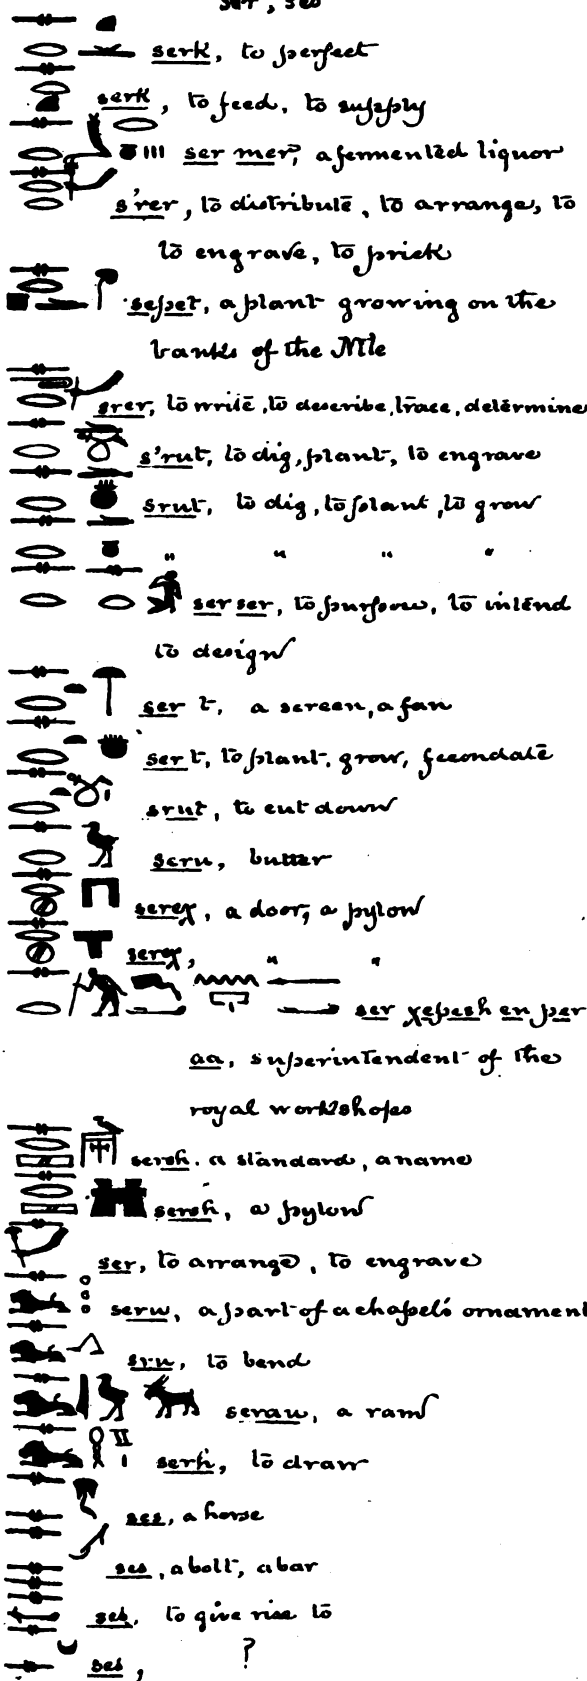 ser, ses
serk, to perfect
serk, to feed, to supply
ser mer, a fermented liquor
s'rer, to distribute, to arrange, to
to engrave, to prick
sepet, a plant growing on the
banks of the Nile
srer, to write, to describe, trace, determine
s'rut, to dig, plant, to engrave
srut, to dig, to plant, to grow
" " " "
ser ser, to purpose, to intend
to design
ser t, a screen, a fan
ser t, to plant, grow, fecondate
srut, to cut down
seru, butter
serex, a door, a pylon
serex, " "
ser xepesh en per
aa, superintendent of the
royal workshops
sersh. a standard, a name
sersh, a pylon
ser, to arrange, to engrave
seru, a part of a chapel's ornament
sru, to bend
serau, a ram
serh, to draw
ses, a horse
ses, a bolt, a bar
to give rise to
ses, ?